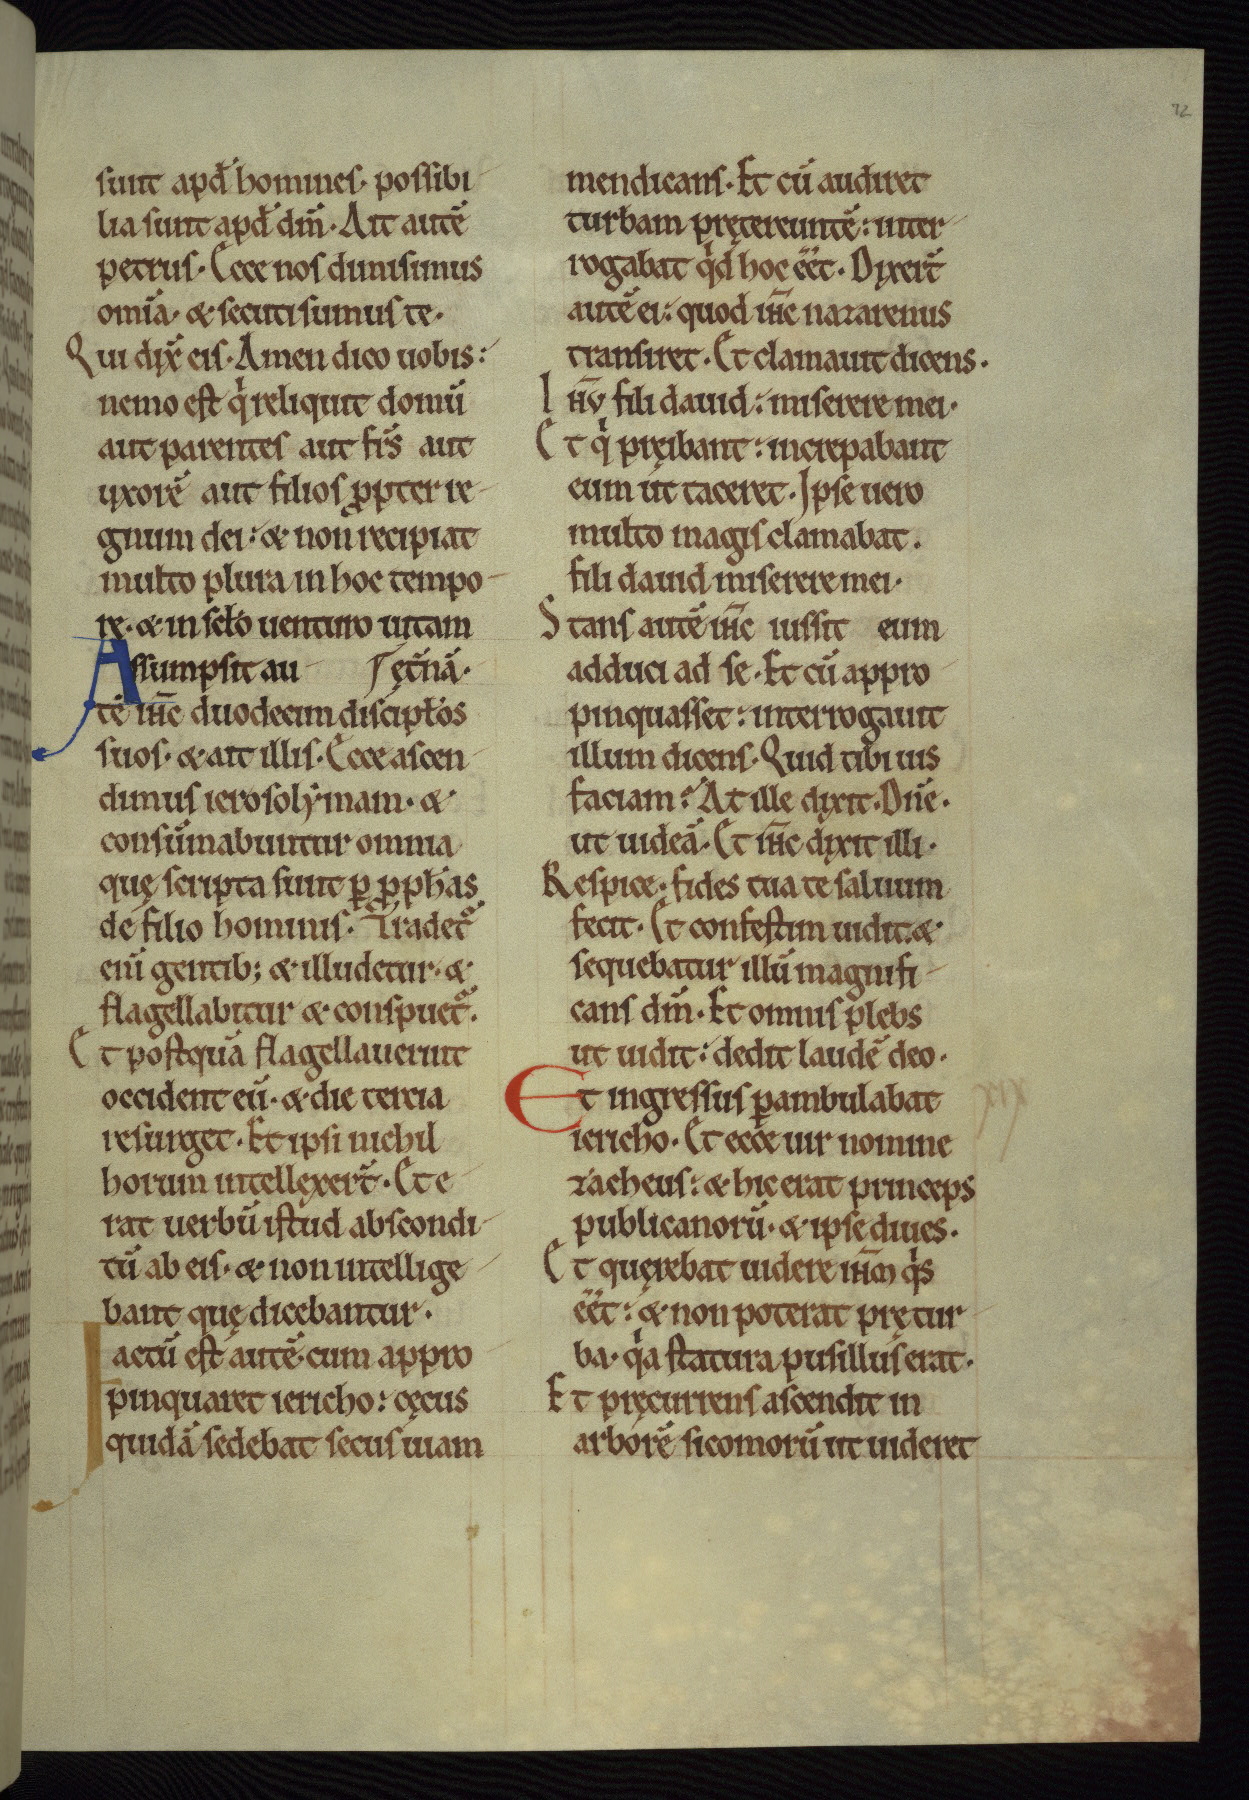 72
sunt apđ homines. possibi-
lia sunt apđ dm̄. Ait autē
petrus. Ecce nos dimisimus
omīa. & secuti sumus te.
Qui dix̄ eis. Amen dico uobis:
nemo est qͥ reliquit domū
aut parentes aut fr̄s aut
uxorē aut filios ꝓpter re-
gnum dei: & non recipiat
multo plura in hoc tempo-
re. & in scło uenturo uitam
Assumpsit au- ęt̄nā.
tē ih̄c duodecim discipłos
suos. & ait illis. Ecce ascen-
dimus ierosolẏmam. &
consūmabuntur omnia
quę scripta sunt ꝑ ꝓph̄as
de filio hominis. Tradet᷑
enī gentib; & illudetur. &
flagellabitur & conspuet᷑.
Et postquā flagellauerint
occident eū. & die tercia
resurget. Et ipsi nichil
horum intellexer̄t. Et e-
rat uerbū istud abscondi-
tū ab eis. & non intellige-
bant quę dicebantur.
Factū est autē. cum appro-
pinquaret iericho: cęcus
quidā sedebat secus uiam
mendicans. Et cū audiret
turbam prętereuntē: inter-
rogabat qͥd hoc eēt. Dixer̄t
autē ei: quod ih̄c nazarenus
transiret. Et clamauit dicens.
Ih̄v fili dauid: miserere mei.
Et qͥ pręibant: increpabant
eum ut taceret. Ipse uero
multo magis clamabat.
fili dauid miserere mei.
Stans autē ih̄c iussit eum
adduci ad se. Et cū appro-
pinquasset: interrogauit
illum dicens. Quid tibi uis
faciam? At ille dixit. Dn̄e.
ut uideā. Et ih̄c dixit illi.
Respice. fides tua te saluum
fecit. Et confestim uidit. &
sequebatur illū magnifi-
cans dm̄. Et omnis plebs
ut uidit: dedit laudē deo.
Et ingressus ꝑambulabat
iericho. Et ecce uir nomine
zacheus: & hic erat princeps
publicanorū. & ipse diues.
Et quęrebat uidere ih̄m qͥs
eēt: & non poterat prę tur-
ba. qͥa statura pusillus erat.
Et pręcurrens ascendit in
arborē sicomorū ut uideret
xix